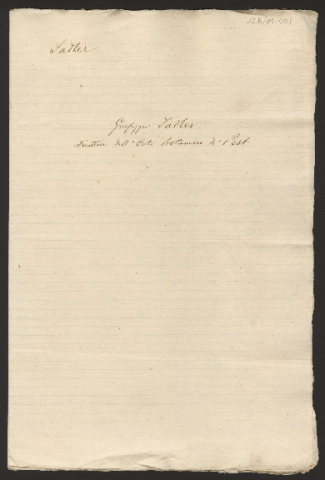 128/01-001
Sadler
Giuseppe Sadler
direttore dell' Orto botanico di Pest